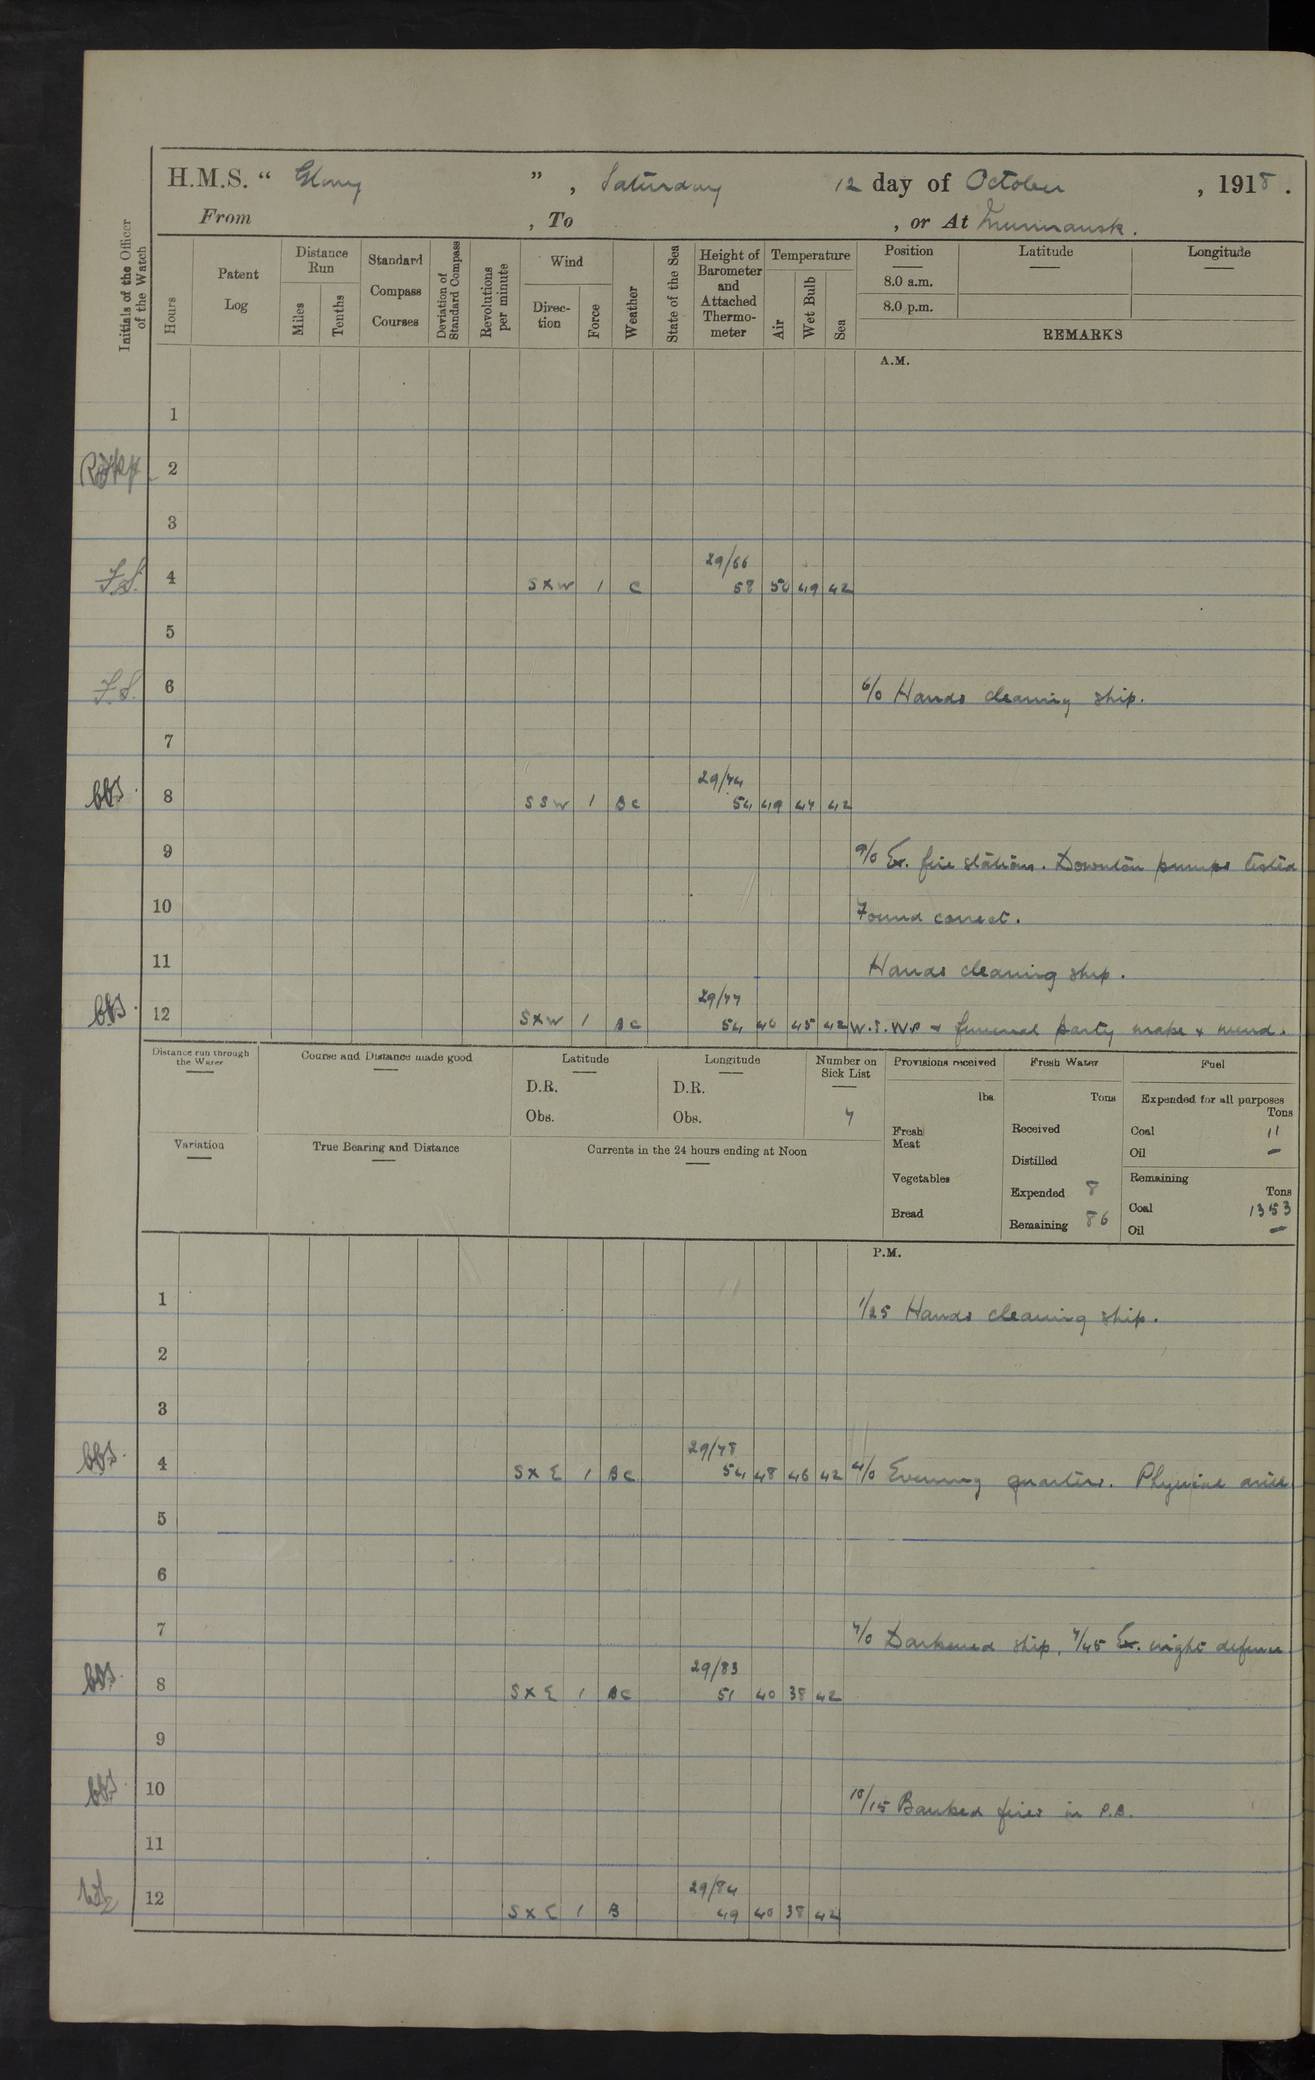 H.M.S. “ Glory ” , Saturday 12 day of October , 1918 .
From , To , or At Murmansk.
Initials of the Officer of the Watch
Hours
Patent Log
Distance Run
Miles
Tenths
Standard Compass Courses
Deviation of Standard Compass
Revolutions per minute
Wind
Direc-tion
Force
Weather
State of the Sea
Height of Barometer and Attached Thermo-meter
Temperature
Air
Wet Bulb
Sea
Position
8.0 a.m.
8.0 p.m.
Latitude
Longitude
REMARKS
A.M.
1
2
3
29/66
F.S. 4 S x W 1 C 58 50 49 42
5
F.S. 6 6/0 Hands cleaning ship.
7
29/74
8 SSW 1 BC 54 49 47 42
9 9/0 Ex. fire stations. Downton pumps tested
10 Found correct.
11 Hands cleaning ship.
29/77
12 S x W 1 BC 54 46 45 42 W.T. Ws & funeral party make & mend.
Distance run through the Water
Course and Distance made good
Latitude
D.R.
Obs.
Longitude
D.R.
Obs.
Number on Sick List
7
Provisions received
lbs
Fresh Meat
Vegetables
Bread
Fresh Water
Tons
Received
Distilled
Expended 8
Remaining 86
Fuel
Expended for all purposes
Tons
Coal 11
Oil —
Remaining
Tons
Coal 1353
Oil —
Variation
True Bearing and Distance
Currents in the 24 hours ending at Noon
P.M.
1 1/25 Hands cleaning ship.
2
3
29/78
4 S x E 1 BC 54 48 46 42 4/0 Evening quarters. Physical drill
5
6
7 7/0 Darkened ship, 7/45 Ex. night defence
29/83
8 S x E 1 BC 51 40 38 42
9
10 10/15 Banked fires in P.B.
11
29/84
12 S x E 1 B 49 40 38 42